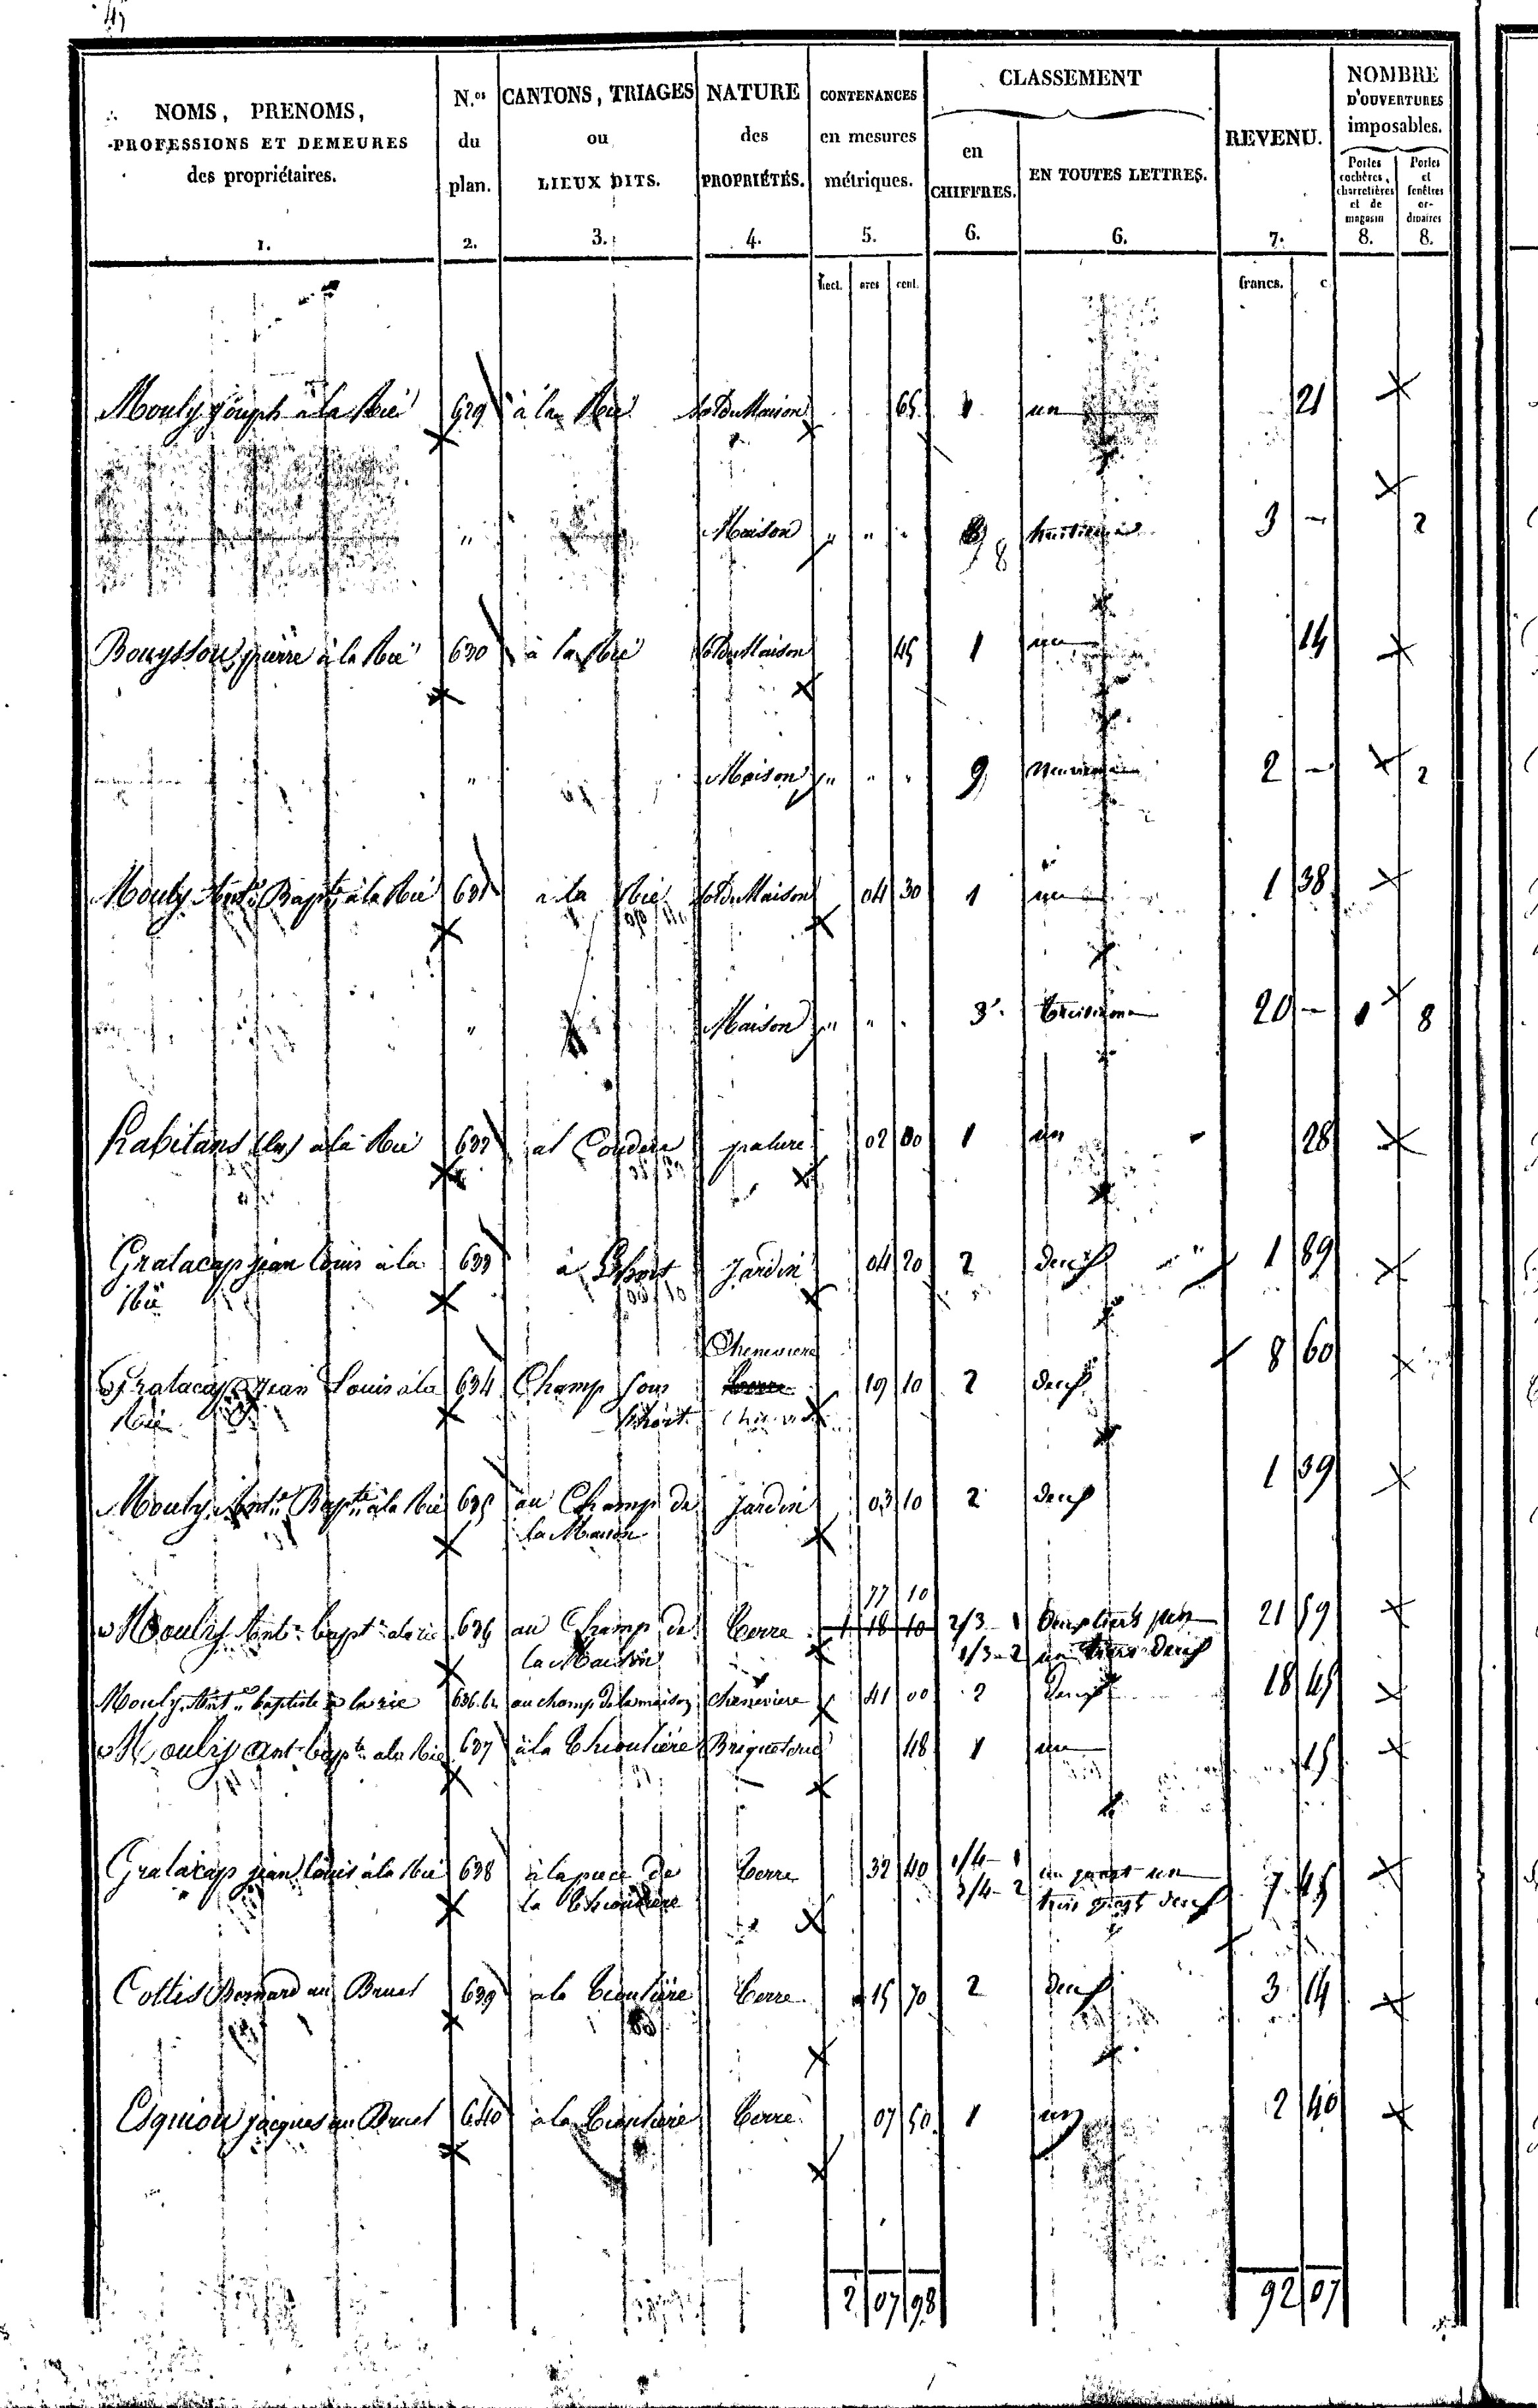 NOMS, PRENOMS, PROFESSIONS ET DEMEURES des propriétaires. 1.
N.os du plan. 2.
CANTONS, TRIAGES ou LIEUX DITS. 3.
NATURE des PROPRIÉTÉS. 4.
CONTENANCES en mesures métriques. 5.
CLASSEMENT
en CHIFFRES. 6.
EN TOUTES LETTRES. 6.
REVENU. 7.
NOMBRE D'OUVERTURES imposables.
Portes cochères, charretières et de magasin 8.
Portes et fenêtres ordinaires 8.
hect. ares cent. francs. c
Mouly joseph à la Rie 629 à la Rie Sol du Maison 65 1 un 21
" Maison " " " 8 huitieme 3 — 2
Bouyssou pierre à la Rie 630 à la Rie Sol du Maison 45 1 un 14
" Maison " " " 9 neuvieme 2 — 2
Mouly Ant.e Bap.te à la Rie 631 a la Rie Sol du Maison 04 30 1 un 1 38
" Maison " " " 3 troisieme 20 — 1 8
habitans (les) a la Rie 632 al Couderc pature 02 80 1 un 28
Gratacap jean louis à la 633 à Jardin 04 20 2 deux 1 89
Rie
Cheneviere
Gratacap Jean Louis a la 634 Champ sous 19 10 2 deux 8 60
Rie
Mouly Ant.e Bap.te à la Rie 635 au Champ de Jardin 03 10 2 deux 1 39
la Maison
77 10
Mouly Ant.e bapt.e a la rie 636 au Champ de terre 1 18 10 2/3 - 1 deux tiers un 21 59
la Maison 1/3 - 2 un tiers deux
Mouly Ant.ne baptiste a la rie 636 bis au champ de la maison cheneviere 41 00 2 deux 18 45
Mouly Ant.e bap.te a la Rie 637 à la Thioulière Briqueterie 48 1 un 15
Gratacap jean louis à la Rie 638 à la piece de terre 32 40 1/4 - 1 un quart un 7 45
la Thioulière 3/4 - 2 trois quart deux
Cottis Bernard au Bruel 639 a la tioulière terre 15 70 2 deux 3 14
Esquiou jacques au Bruel 640 à la tioulière terre 07 50 1 un 2 40
2 07 98 92 07